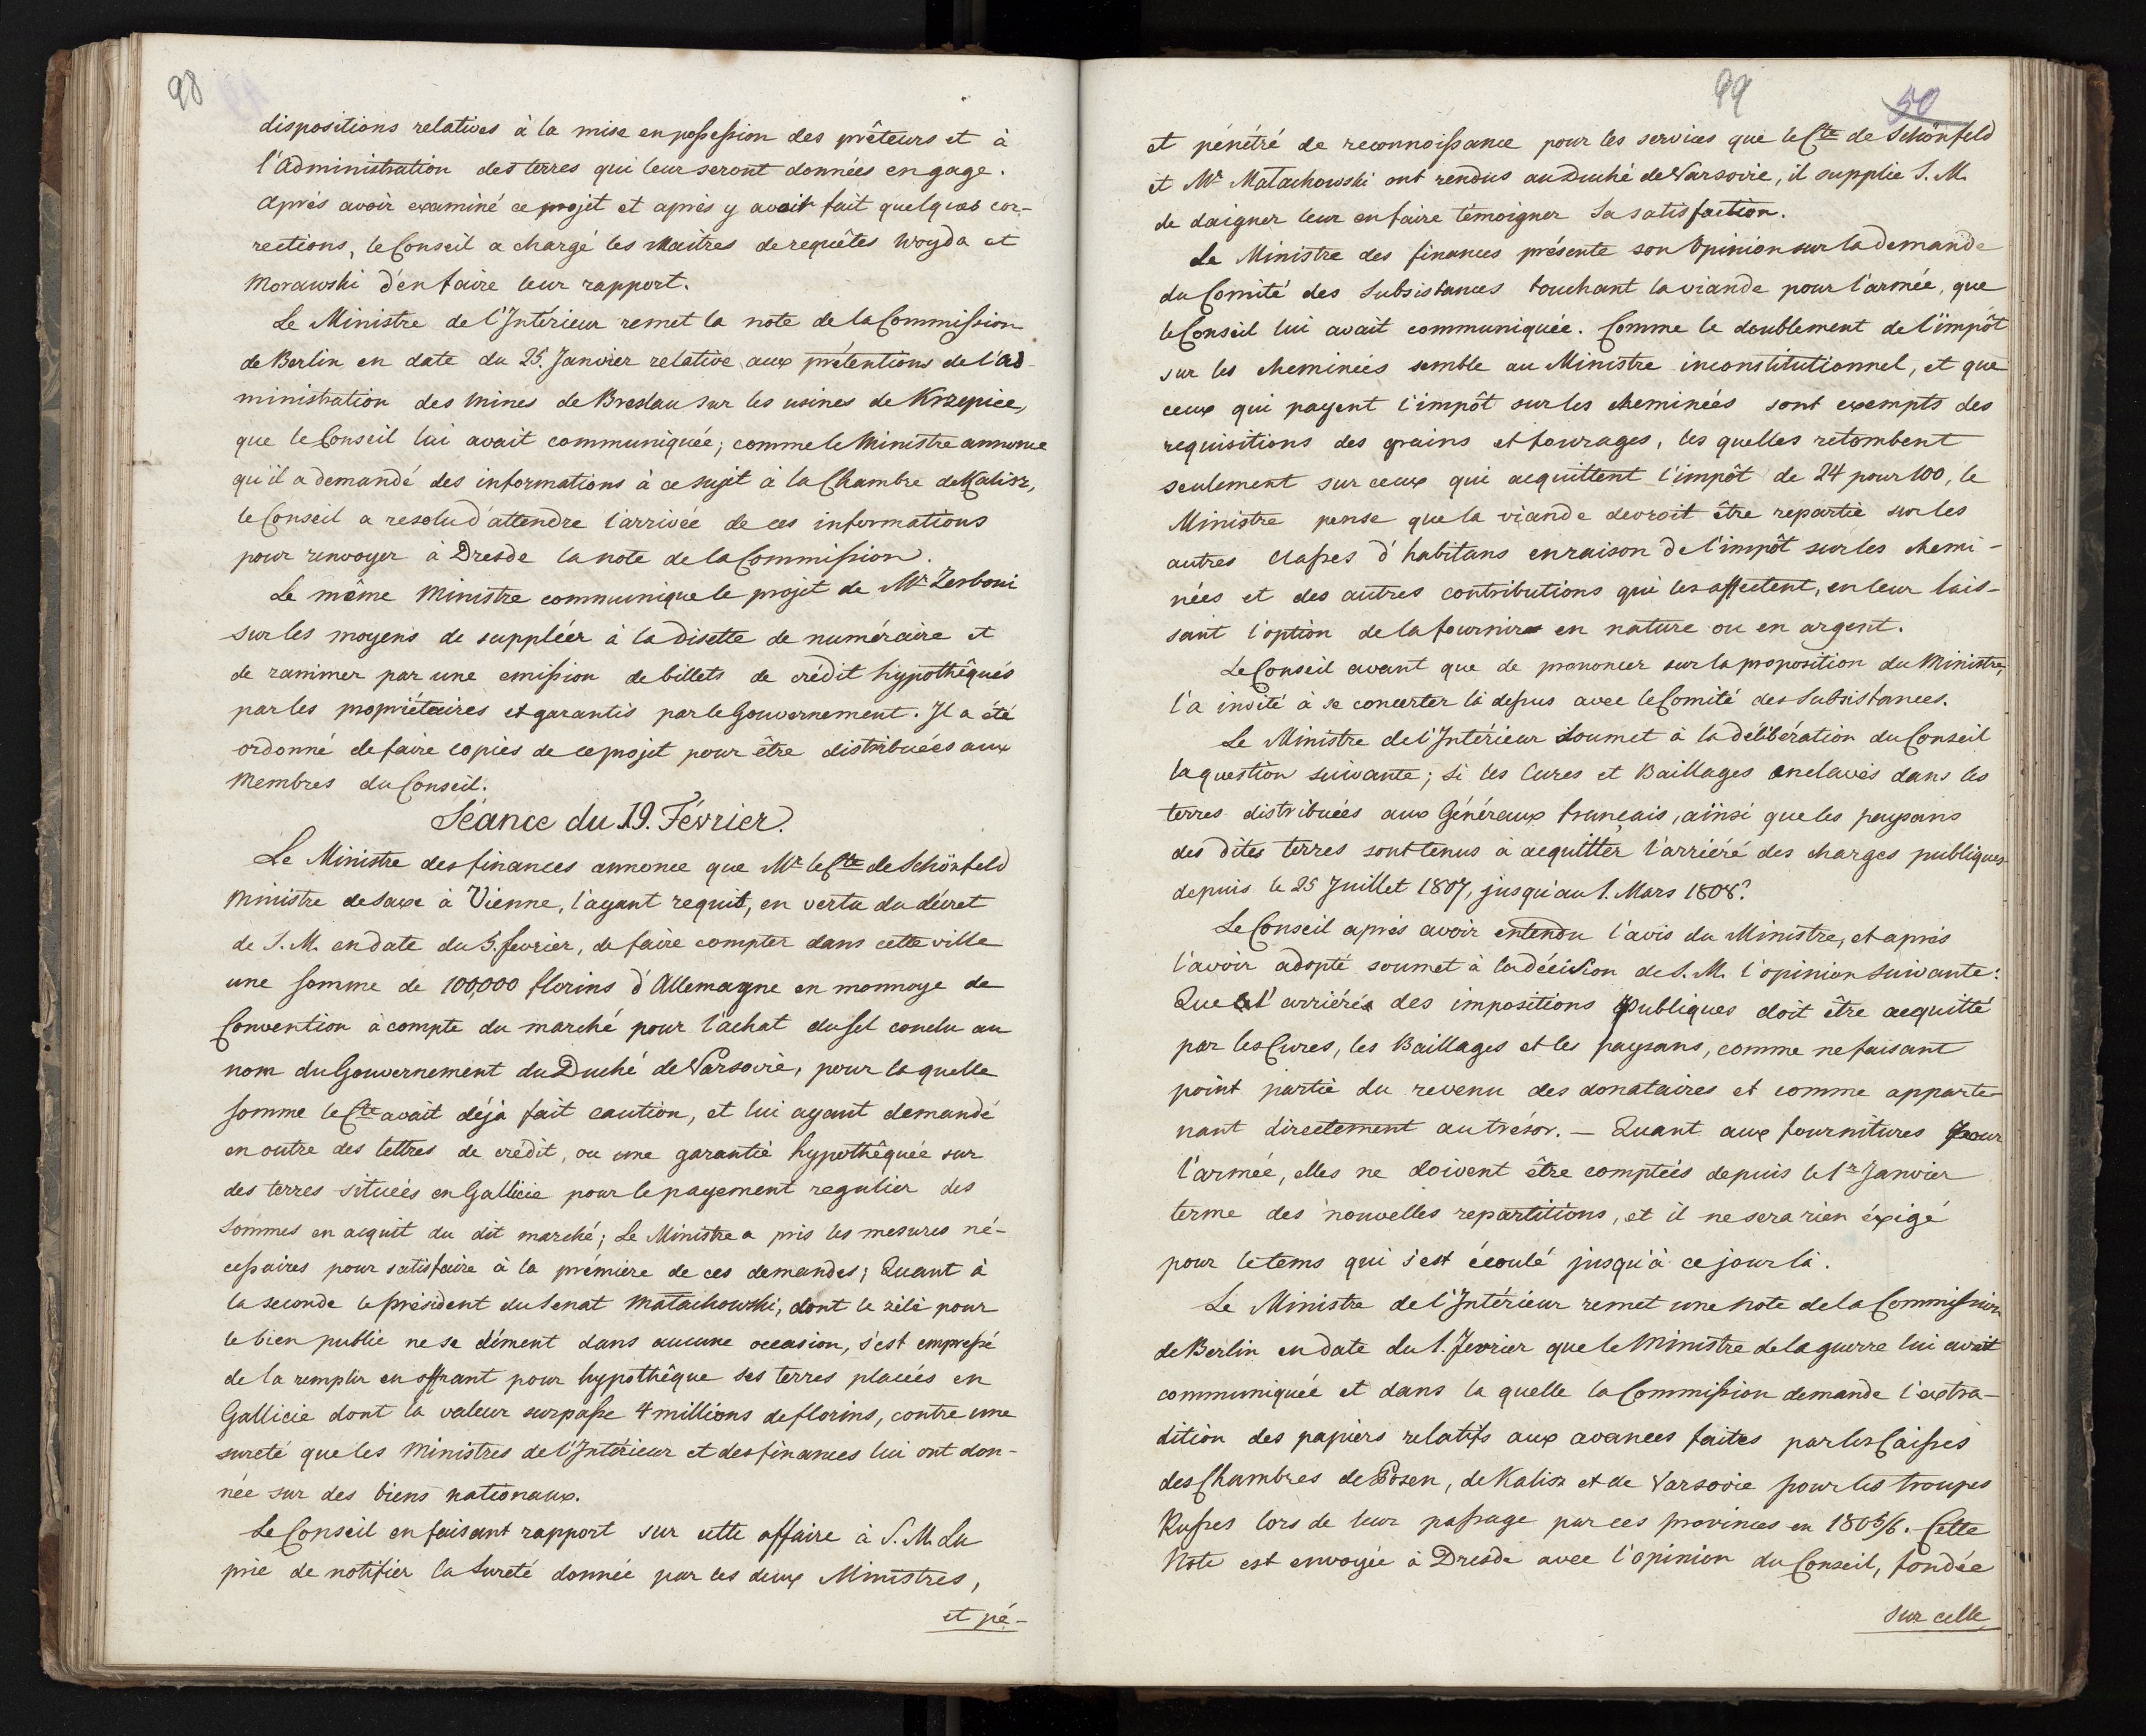 98
dispositions relatives à la mise en possession des prêteurs et à
l'Administration des terres qui leur seront données en gage.
Après avoir examiné ce projet et après y avoir fait quelques cor-
rections, le Conseil a chargé les Maitres de requêtes Woyda et
Morawski d'en faire leur rapport.
Le Ministre de l'Intérieur remet la note de la Commission
de Berlin en date du 25. Janvier relative aux prétentions de l'Ad-
ministration des Mines de Breslau sur les usines de Krzepice,
que le Conseil lui avait communiquée; comme le Ministre annonce
qu'il a demandé des informations à ce sujet à la Chambre de Kalisz,
le Conseil a resolu d'attendre l'arrivée de ces informations
pour renvoyer à Dresde la note de la Commission.
Le même Ministre communique le projet de Mr Zerboni
sur les moyens de suppléer à la disette de numéraire et
de ranimer par une emission de billets de crédit hypothêqués
par les propriétaires et garantis par le Gouvernement. Il a été
ordonné de faire copies de ce projet pour être distribuées aux
Membres du Conseil.
Séance du 19. Février.
Le Ministre des finances annonce que Mr le Cte de Schönfeld
Ministre de Saxe à Vienne, l'ayant requit, en vertu du décret
de S. M. en date du 5. fevrier, de faire compter dans cette ville
une somme de 100,000 florins d'Allemagne en monnoye de
Convention à compte du marché pour l'achat du sel conclu au
nom du Gouvernement du Duché de Varsovie, pour la quelle
somme le Cte avait déjà fait caution, et lui ayant demandé
en outre des lettres de crédit, ou une garantie hypothêquée sur
des terres situées en Gallicie pour le payement regulier des
Sommes en acquit du dit marché; Le Ministre a pris les mesures né-
cessaires pour satisfaire à la prémière de ces demandes; Quant à
la seconde le Président du Senat Małachowski, dont le zèle pour
le bien public ne se dément dans aucune occasion, s'est empressé
de la remplir en offrant pour hypothêque ses terres placées en
Gallicie dont la valeur surpasse 4 millions de florins, contre une
sureté que les Ministres de l'Intérieur et des finances lui ont don-
née sur des biens nationaux.
Le Conseil en faisant rapport sur cette affaire à S. M. La
prie de notifier la Sureté donnée par les deux Ministres,
et pé-
99
50
et pénétré de reconnoissance pour les services que le Cte de Schönfeld
et Mr Małachowski ont rendus au Duché de Varsovie, il supplie S. M.
de daigner leur en faire témoigner Sa satisfaction.
Le Ministre des finances présente son Opinion sur la demande
du Comité des Subsistances touchant la viande pour l'armée, que
le Conseil lui avait communiquée. Comme le doublement de l'impôt
sur les cheminées semble au Ministre inconstitutionnel, et que
ceux qui payent l'impôt sur les cheminées sont exempts des
requisitions des grains et fourages, les quelles retombent
seulement sur ceux qui acquittent l'impôt de 24 pour 100, le
Ministre pense que la viande devroit être repartie sur les
autres classes d'habitans en raison de l'impôt sur les chemi-
nées et des autres contributions qui les affectent, en leur lais-
sant l'option de la fournir en nature ou en argent.
Le Conseil avant que de prononcer sur la proposition du Ministre,
l'a invité à se concerter là dessus avec le Comité des Subsistances.
Le Ministre de l'Intérieur soumet à la délibération du Conseil
la question suivante; Si les Cures et Baillages enclavés dans les
terres distribuées aux Généraux français, ainsi que les paysans
des dites terres sont tenus à acquitter l'arriéré des charges publiques
depuis le 25 Juillet 1807, jusqu'au 1. Mars 1808?
Le Conseil après avoir entendu l'avis du Ministre, et après
l'avoir adopté soumet à la décision de S. M. l'opinion suivante:
Que l'arriéré des impositions publiques doit être acquitté
par les Cures, les Baillages et les paysans, comme ne faisant
point partie du revenu des donataires et comme apparte-
nant directement au trésor. — Quant aux fournitures pour
l'armée, elles ne doivent être comptées depuis le 1r Janvier
terme des nouvelles repartitions, et il ne sera rien éxigé
pour le tems qui s'est écoulé jusqu'à ce jour là.
Le Ministre de l'Intérieur remet une Note de la Commission
de Berlin en date du 1. Fevrier que le Ministre de la guerre lui avait
communiquée et dans la quelle la Commission demande l'extra-
dition des papiers relatifs aux avances faites par les Caisses
des Chambres de Posen, de Kalisz et de Varsovie pour les troupes
Russes lors de leur passage par ces provinces en 1805/6. Cette
Note est envoyée à Dresde avec l'opinion du Conseil, fondée
sur celle